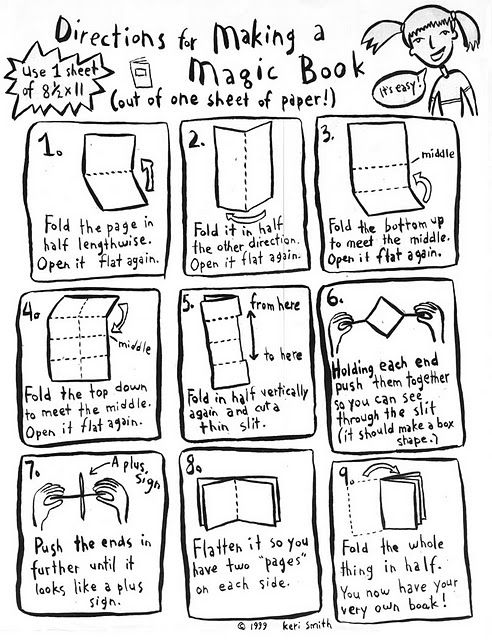 Directions for Making a
Magic Book
(out of one sheet of paper!)
Use 1 sheet
of 8½ x 11
It's easy!
1.
Fold the page in
half lengthwise.
Open it flat again.
2.
Fold it in half
the other direction.
Open it flat again.
3.
middle
Fold the bottom up
to meet the middle.
Open it flat again.
4.
middle
Fold the top down
to meet the middle.
Open it flat again.
5.
from here
to here
Fold in half vertically
again and cut a
thin slit.
6.
Holding each end
push them together
so you can see
through the slit
(it should make a box
shape.)
7.
A plus
sign
Push the ends in
further until it
looks like a plus
sign.
8.
Flatten it so you
have two "pages"
on each side.
9.
Fold the whole
thing in half.
You now have your
very own book!
© 1999 keri smith